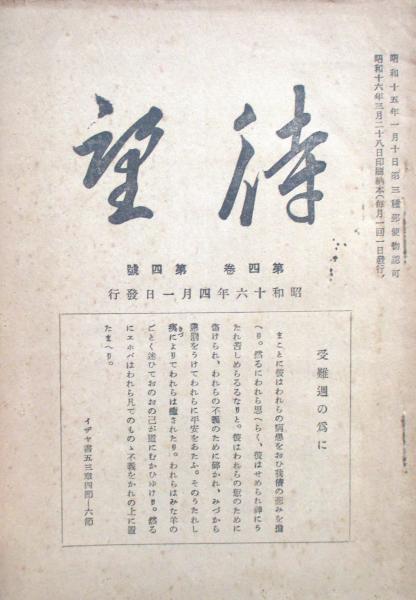 昭和十五年一月十日第三種郵便物認可
昭和十六年三月二十八日印刷納本(毎月一回一日發行)
待望
第四卷 第四號
昭和十六年四月一日發行
受難週の爲に
まことに彼はわれらの病患をおひ我儕の悲みを擔
へり。然るにわれら思へらく、彼はせめられ神にう
たれ苦しめらるるなりと。彼はわれらの愆のために
傷けられ、われらの不義のために碎かれ、みづから
懲罰をうけてわれらに平安をあたふ。そのうたれし
痍によりてわれらは癒されたり。われらはみな羊の
きず
ごとく迷ひておのおの己が道にむかひゆけり。然る
にヱホバはわれら凡てのものゝ不義をかれの上に置
たまへり。
イザヤ書五三章四節—六節